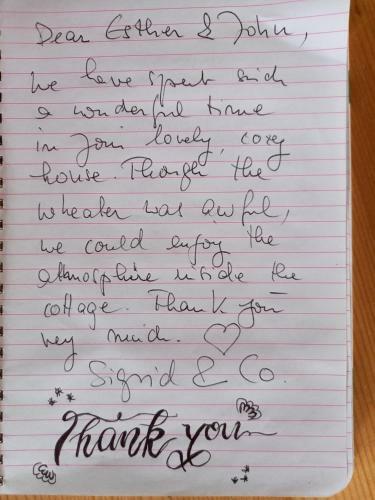 Dear Esther & John,
we have spent such
a wonderful time
in your lovely, cozy
house. Though the
wheater was awful,
we could enjoy the
athmosphire inside the
cottage. Thank you
very much. ♡
Sigrid & Co.
Thank you